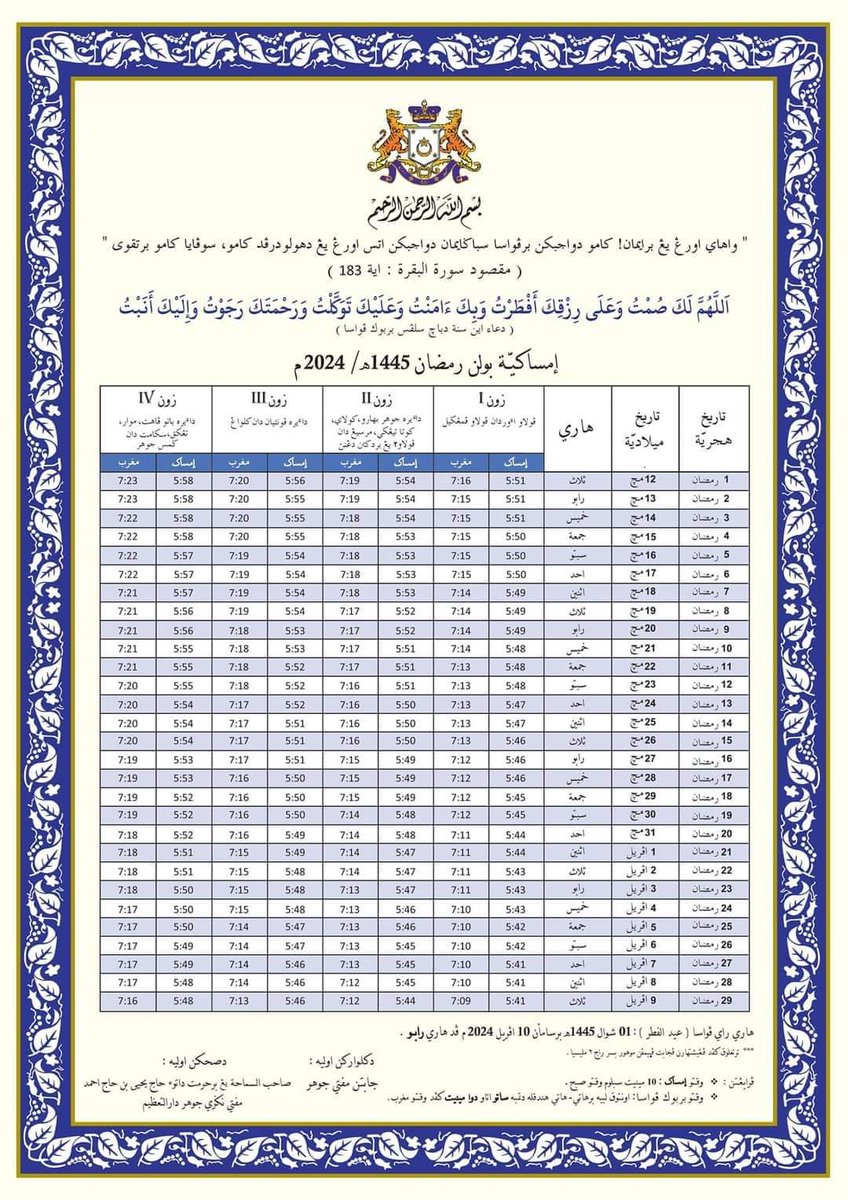 بسم الله الرحمن الرحيم
" واهاي اورڠ يڠ برايمان! كامو دواجبكن برڤواسا سباݢايمان دواجبكن اتس اورڠ يڠ دهولودرڤد كامو، سوڤايا كامو برتقوى "
( مقصود سورة البقرة : اية 183 )
اَللَّهُمَّ لَكَ صُمْتُ وَعَلَى رِزْقِكَ أَفْطَرْتُ وَبِكَ ءَامَنْتُ وَعَلَيْكَ تَوَكَّلْتُ وَرَحْمَتَكَ رَجَوْتُ وَإِلَيْكَ أَنَبْتُ
( دعاء اين سنة دباچ سلڤس بربوك ڤواسا )
إمساكيّة بولن رمضان 1445هـ/ 2024م
تاريخ هجريّة تاريخ ميلاديّة هاري زون I زون II زون III زون IV
ڤولاو اءور دان ڤولاو ڤمڠݢيل
دا\u0621يره جوهر بهارو، كولاي،
كوتا تيڠݢي، مرسيڠ دان
ڤولاو٢ يڠ بردكتن دڠنن
دا\u0621يره ڤونتيان دان كلواڠ
دا\u0621يره باتو ڤاهت، موار،
تڠكق، سݢامت دان
ݢمس جوهر
إمساك مغرب إمساك مغرب إمساك مغرب إمساك مغرب
1 رمضان 12 مچ ثلاث 5:51 7:16 5:54 7:19 5:56 7:20 5:58 7:23
2 رمضان 13 مچ رابو 5:51 7:15 5:54 7:19 5:55 7:20 5:58 7:23
3 رمضان 14 مچ خميس 5:51 7:15 5:54 7:18 5:55 7:20 5:58 7:22
4 رمضان 15 مچ جمعة 5:50 7:15 5:53 7:18 5:55 7:20 5:58 7:22
5 رمضان 16 مچ سبتو 5:50 7:15 5:53 7:18 5:54 7:19 5:57 7:22
6 رمضان 17 مچ احد 5:50 7:15 5:53 7:18 5:54 7:19 5:57 7:22
7 رمضان 18 مچ اثنين 5:49 7:14 5:52 7:18 5:54 7:19 5:57 7:21
8 رمضان 19 مچ ثلاث 5:49 7:14 5:52 7:17 5:54 7:19 5:56 7:21
9 رمضان 20 مچ رابو 5:49 7:14 5:52 7:17 5:53 7:18 5:56 7:21
10 رمضان 21 مچ خميس 5:48 7:14 5:51 7:17 5:53 7:18 5:55 7:21
11 رمضان 22 مچ جمعة 5:48 7:13 5:51 7:17 5:52 7:18 5:55 7:21
12 رمضان 23 مچ سبتو 5:48 7:13 5:51 7:16 5:52 7:18 5:55 7:20
13 رمضان 24 مچ احد 5:47 7:13 5:50 7:16 5:52 7:17 5:54 7:20
14 رمضان 25 مچ اثنين 5:47 7:13 5:50 7:16 5:51 7:17 5:54 7:20
15 رمضان 26 مچ ثلاث 5:46 7:13 5:50 7:16 5:51 7:17 5:54 7:20
16 رمضان 27 مچ رابو 5:46 7:12 5:49 7:15 5:51 7:17 5:53 7:19
17 رمضان 28 مچ خميس 5:46 7:12 5:49 7:15 5:50 7:16 5:53 7:19
18 رمضان 29 مچ جمعة 5:45 7:12 5:49 7:15 5:50 7:16 5:52 7:19
19 رمضان 30 مچ سبتو 5:45 7:12 5:48 7:14 5:50 7:16 5:52 7:19
20 رمضان 31 مچ احد 5:44 7:11 5:48 7:14 5:49 7:16 5:52 7:18
21 رمضان 1 اڤريل اثنين 5:44 7:11 5:47 7:14 5:49 7:15 5:51 7:18
22 رمضان 2 اڤريل ثلاث 5:43 7:11 5:47 7:14 5:48 7:15 5:51 7:18
23 رمضان 3 اڤريل رابو 5:43 7:11 5:47 7:13 5:48 7:15 5:50 7:18
24 رمضان 4 اڤريل خميس 5:43 7:10 5:46 7:13 5:48 7:15 5:50 7:17
25 رمضان 5 اڤريل جمعة 5:42 7:10 5:46 7:13 5:47 7:14 5:50 7:17
26 رمضان 6 اڤريل سبتو 5:42 7:10 5:45 7:13 5:47 7:14 5:49 7:17
27 رمضان 7 اڤريل احد 5:41 7:10 5:45 7:13 5:46 7:14 5:49 7:17
28 رمضان 8 اڤريل اثنين 5:41 7:10 5:45 7:12 5:46 7:14 5:48 7:17
29 رمضان 9 اڤريل ثلاث 5:41 7:09 5:44 7:12 5:46 7:13 5:48 7:16
هاري راي ڤواسا ( عيد الفطر ) : 01 شوال 1445هـ برسامأن 10 اڤريل 2024م ڤد هاري رابو .
*** ترتعلوق كڤد ڤڠيشتهارن ڤجابت ڤڽيمڤن موهور بسر راج٢ مليسيا .
ڤراݢڠن : ❖ وقتو إمساك : 10 مينيت سبلوم وقتو صبح .
❖ وقتو بربوك ڤواسا: اونتوق لبيه برهاتي-هاتي هندقله دتمبه ساتو اتاو دوا مينيت كڤد وقتو مغرب.
دكلواركن اوليه :
جابتن مفتي جوهر
دصحكن اوليه :
صاحب السماحة يڠ برحرمت داتوء حاج يحيى بن حاج احمد
مفتي نݢري جوهر دارالتعظيم